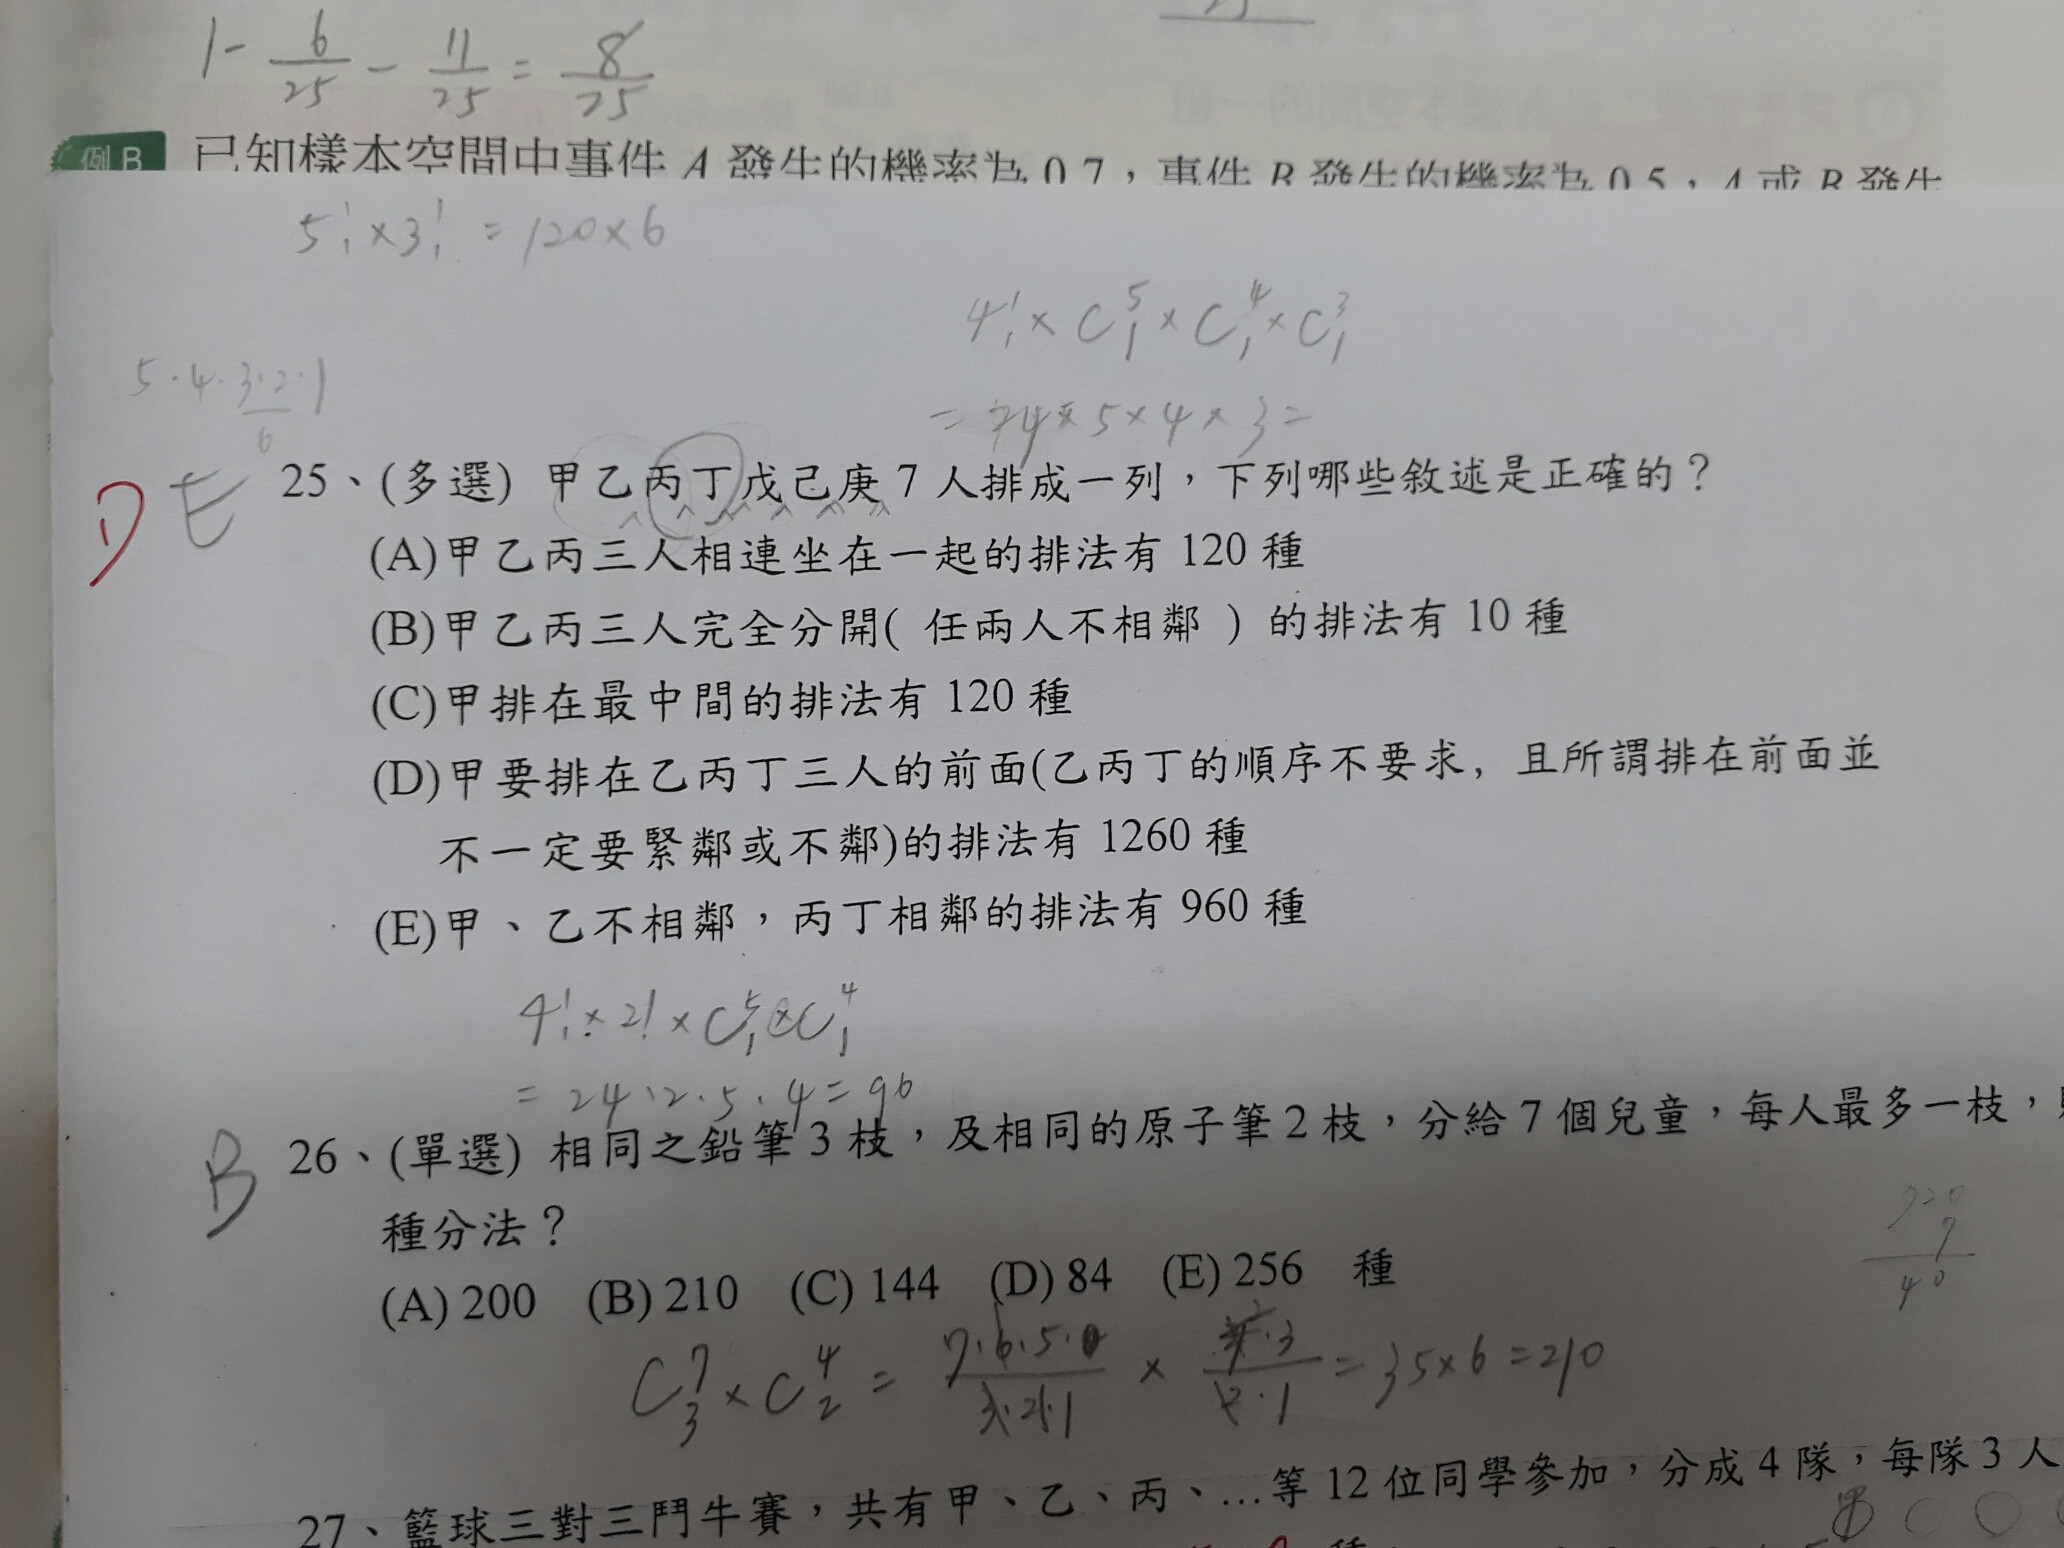 1 - 6/25 - 11/25 = 8/25
例B 已知樣本空間中事件 A 發生的機率為 0.7，事件 B 發生的機率為 0.5，A 或 B 發生
5! × 3! = 120 × 6
4! × C⁵₁ × C⁴₁ × C³₁
5·4·3·2·1
= 24 × 5 × 4 × 3 =
6
D E 25、(多選) 甲乙丙丁戊己庚 7 人排成一列，下列哪些敘述是正確的？
(A)甲乙丙三人相連坐在一起的排法有 120 種
(B)甲乙丙三人完全分開( 任兩人不相鄰 ) 的排法有 10 種
(C)甲排在最中間的排法有 120 種
(D)甲要排在乙丙丁三人的前面(乙丙丁的順序不要求, 且所謂排在前面並
不一定要緊鄰或不鄰)的排法有 1260 種
(E)甲、乙不相鄰，丙丁相鄰的排法有 960 種
4! × 2! × C⁵₁ × C⁴₁
= 24·2·5·4 = 96
B 26、(單選) 相同之鉛筆 3 枝，及相同的原子筆 2 枝，分給 7 個兒童，每人最多一枝，
種分法？
720
7
40
(A) 200 (B) 210 (C) 144 (D) 84 (E) 256 種
C⁷₃ × C⁴₂ = 7·6·5/3·2·1 × 4·3/2·1 = 35×6 = 210
27、籃球三對三鬥牛賽，共有甲、乙、丙、…等 12 位同學參加，分成 4 隊，每隊 3 人
種